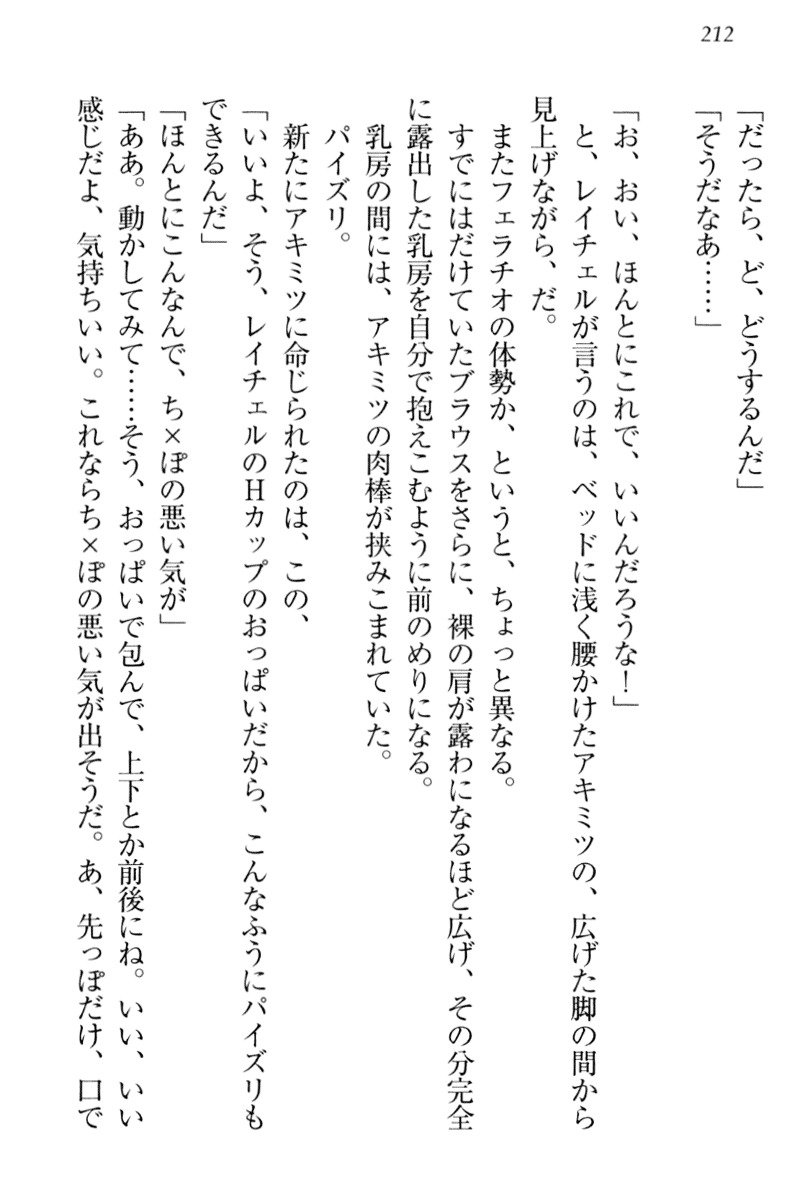 212
「だったら、ど、どうするんだ」
「そうだなあ……」
「お、おい、ほんとにこれで、いいんだろうな！」
と、レイチェルが言うのは、ベッドに浅く腰かけたアキミツの、広げた脚の間から
見上げながら、だ。
またフェラチオの体勢か、というと、ちょっと異なる。
すでにはだけていたブラウスをさらに、裸の肩が露わになるほど広げ、その分完全
に露出した乳房を自分で抱えこむように前のめりになる。
乳房の間には、アキミツの肉棒が挟みこまれていた。
パイズリ。
新たにアキミツに命じられたのは、この、
「いいよ、そう、レイチェルのHカップのおっぱいだから、こんなふうにパイズリも
できるんだ」
「ほんとにこんなんで、ち×ぽの悪い気が」
「ああ。動かしてみて……そう、おっぱいで包んで、上下とか前後にね。いい、いい
感じだよ、気持ちいい。これならち×ぽの悪い気が出そうだ。あ、先っぽだけ、口で